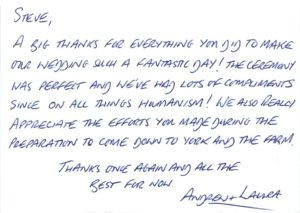 STEVE,
A BIG THANKS FOR EVERYTHING YOU DID TO MAKE
OUR WEDDING SUCH A FANTASTIC DAY! THE CEREMONY
WAS PERFECT AND WE'VE HAD LOTS OF COMPLIMENTS
SINCE ON ALL THINGS HUMANISM! WE ALSO REALLY
APPRECIATE THE EFFORTS YOU MADE DURING THE
PREPARATION TO COME DOWN TO YORK AND THE FARM.
THANKS ONCE AGAIN AND ALL THE
BEST FOR NOW.
ANDREW + LAURA